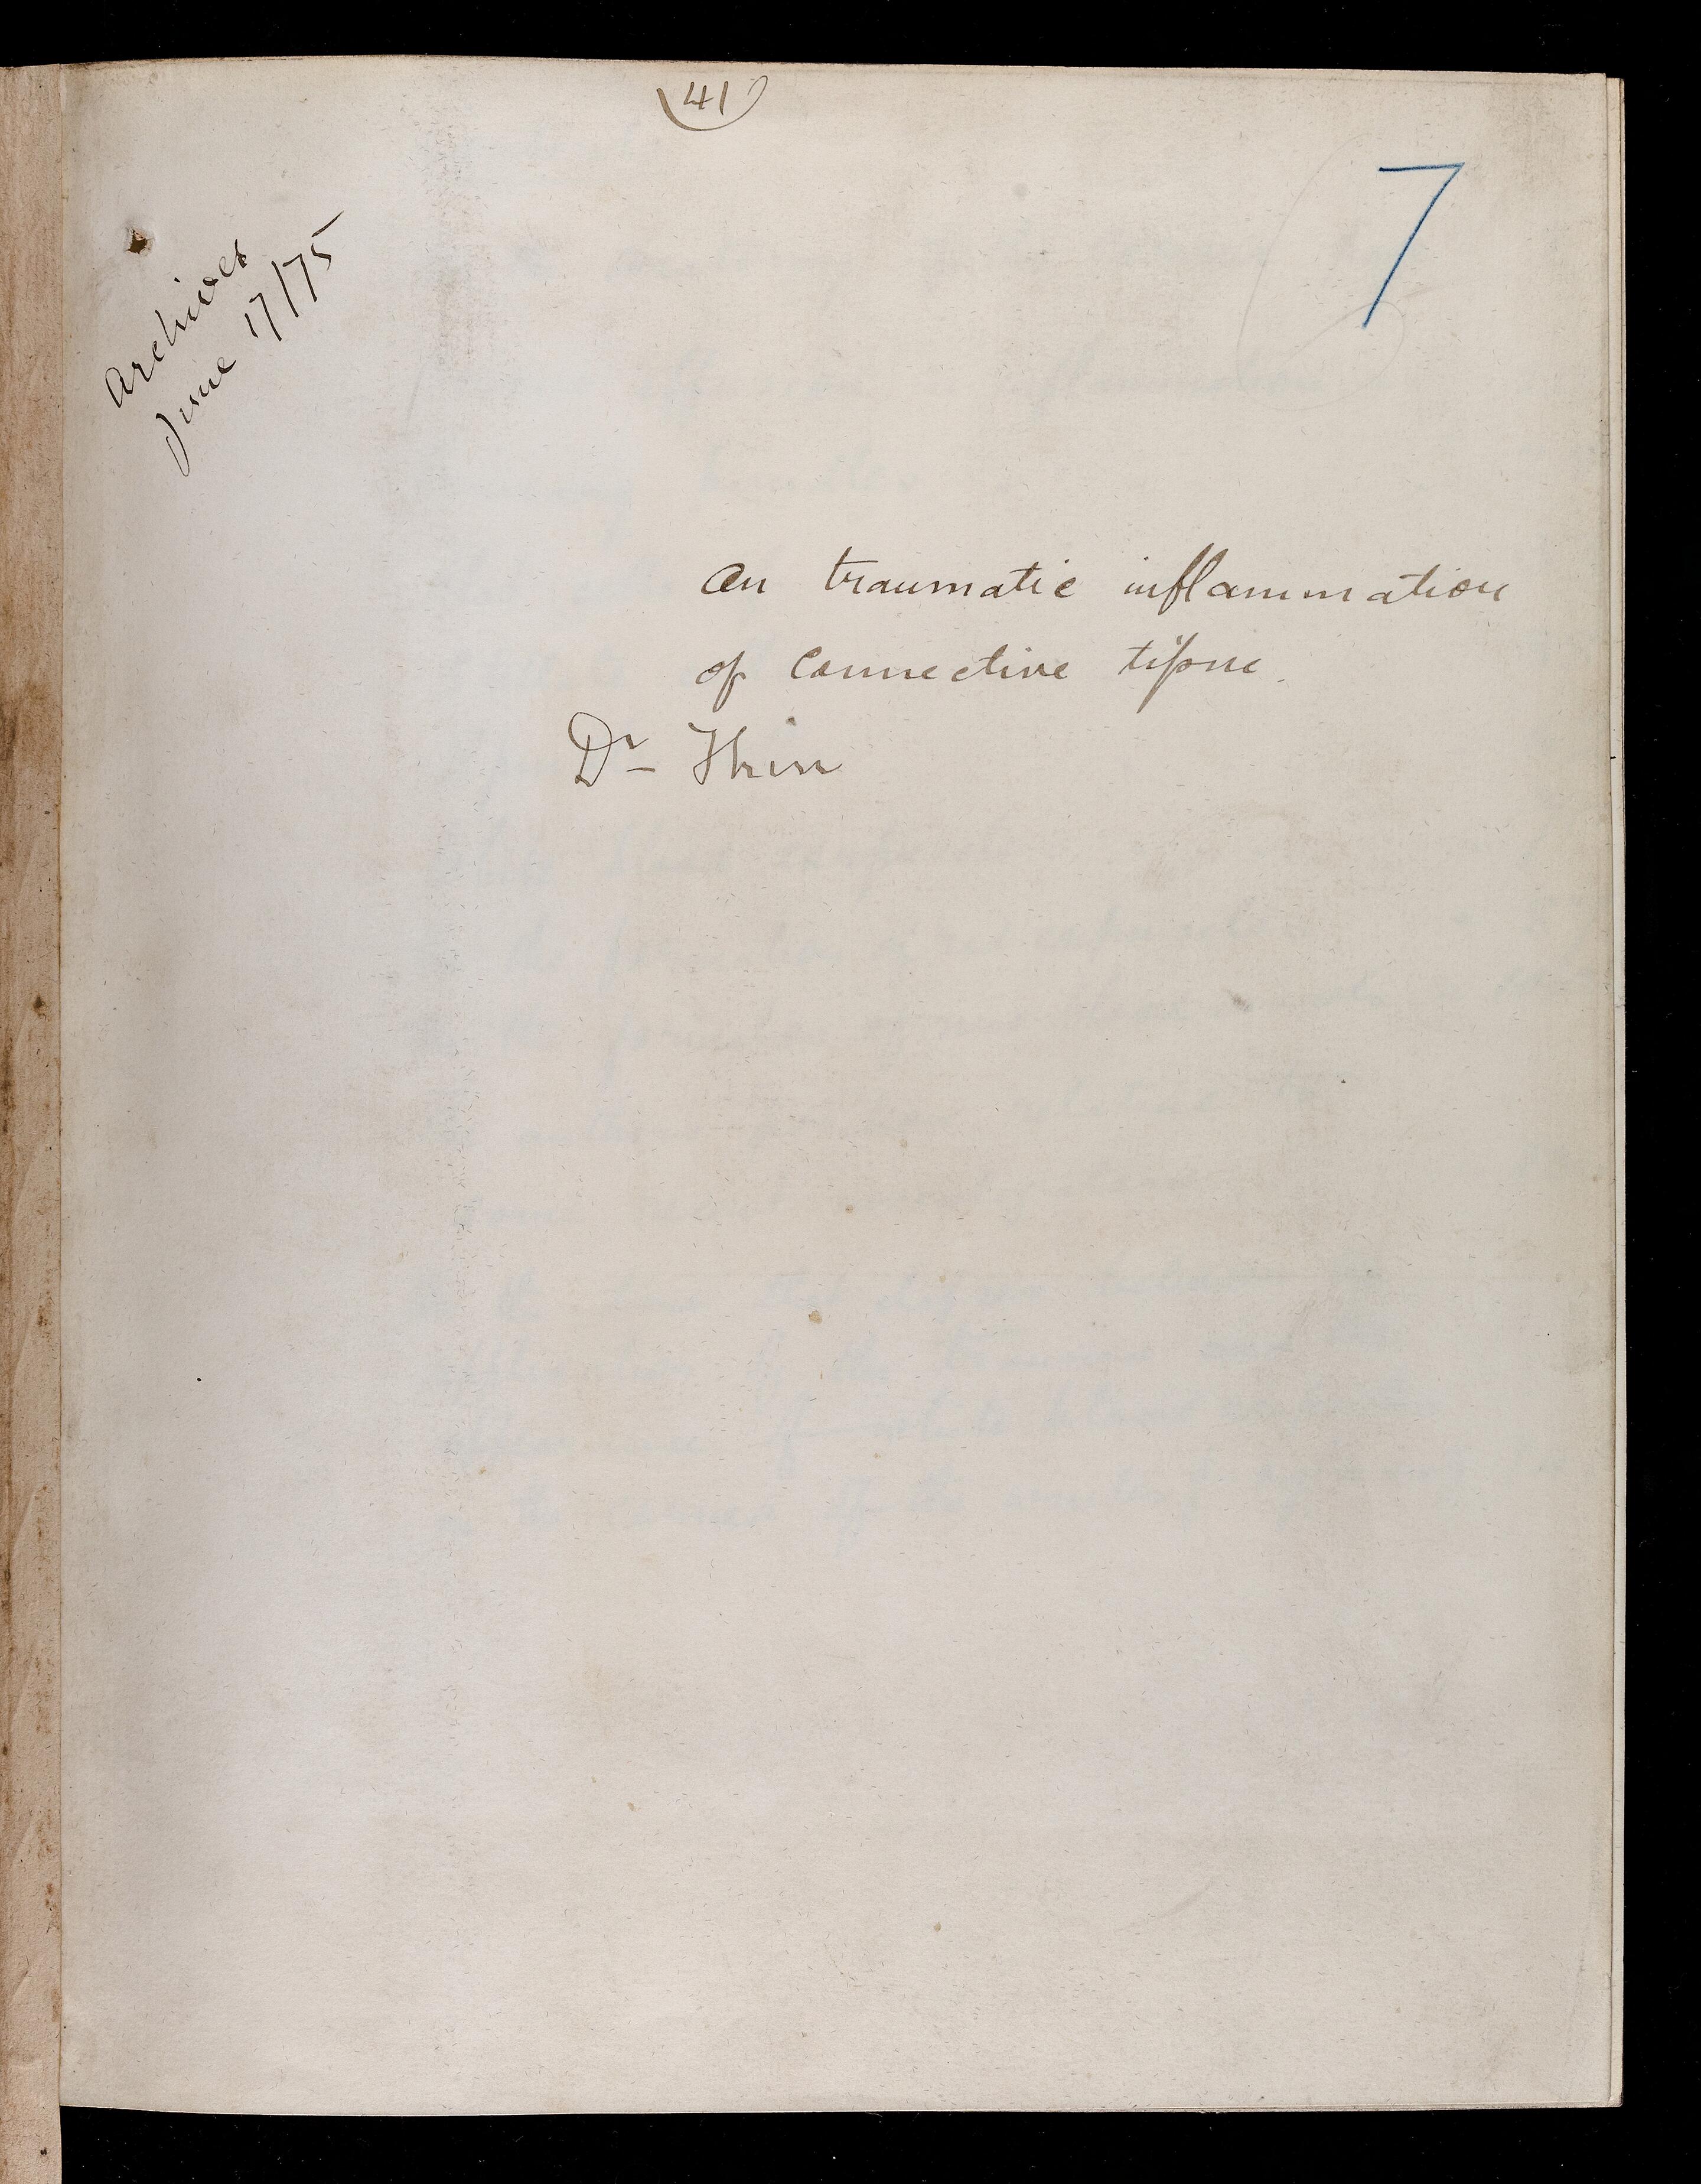 (41)
7
Archives
June 17/75
On traumatic inflammation
of Connective tissue.
Dr Thin